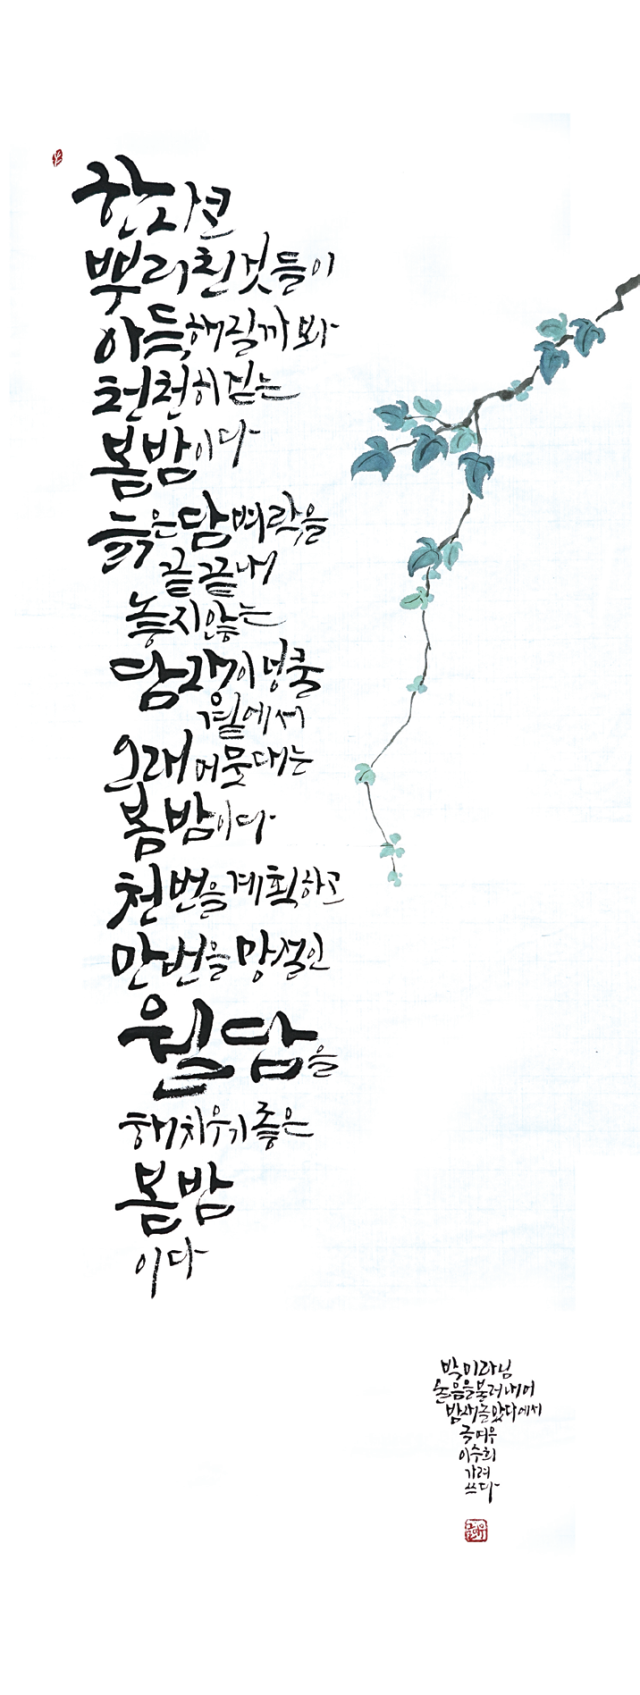 한자코
뿌리친것들이
아득해질까봐
천천히걷는
봄밤이다
늙은담벼락을
끝끝내
놓지않는
담쟁이넝쿨
밑에서
오래머뭇대는
봄밤이다
천번을계획하고
만번을망설인
월담을
해치우기좋은
봄밤
이다
박미라님
울음을불러내어
밤새놀았다에서
이수희
가려
쓰다